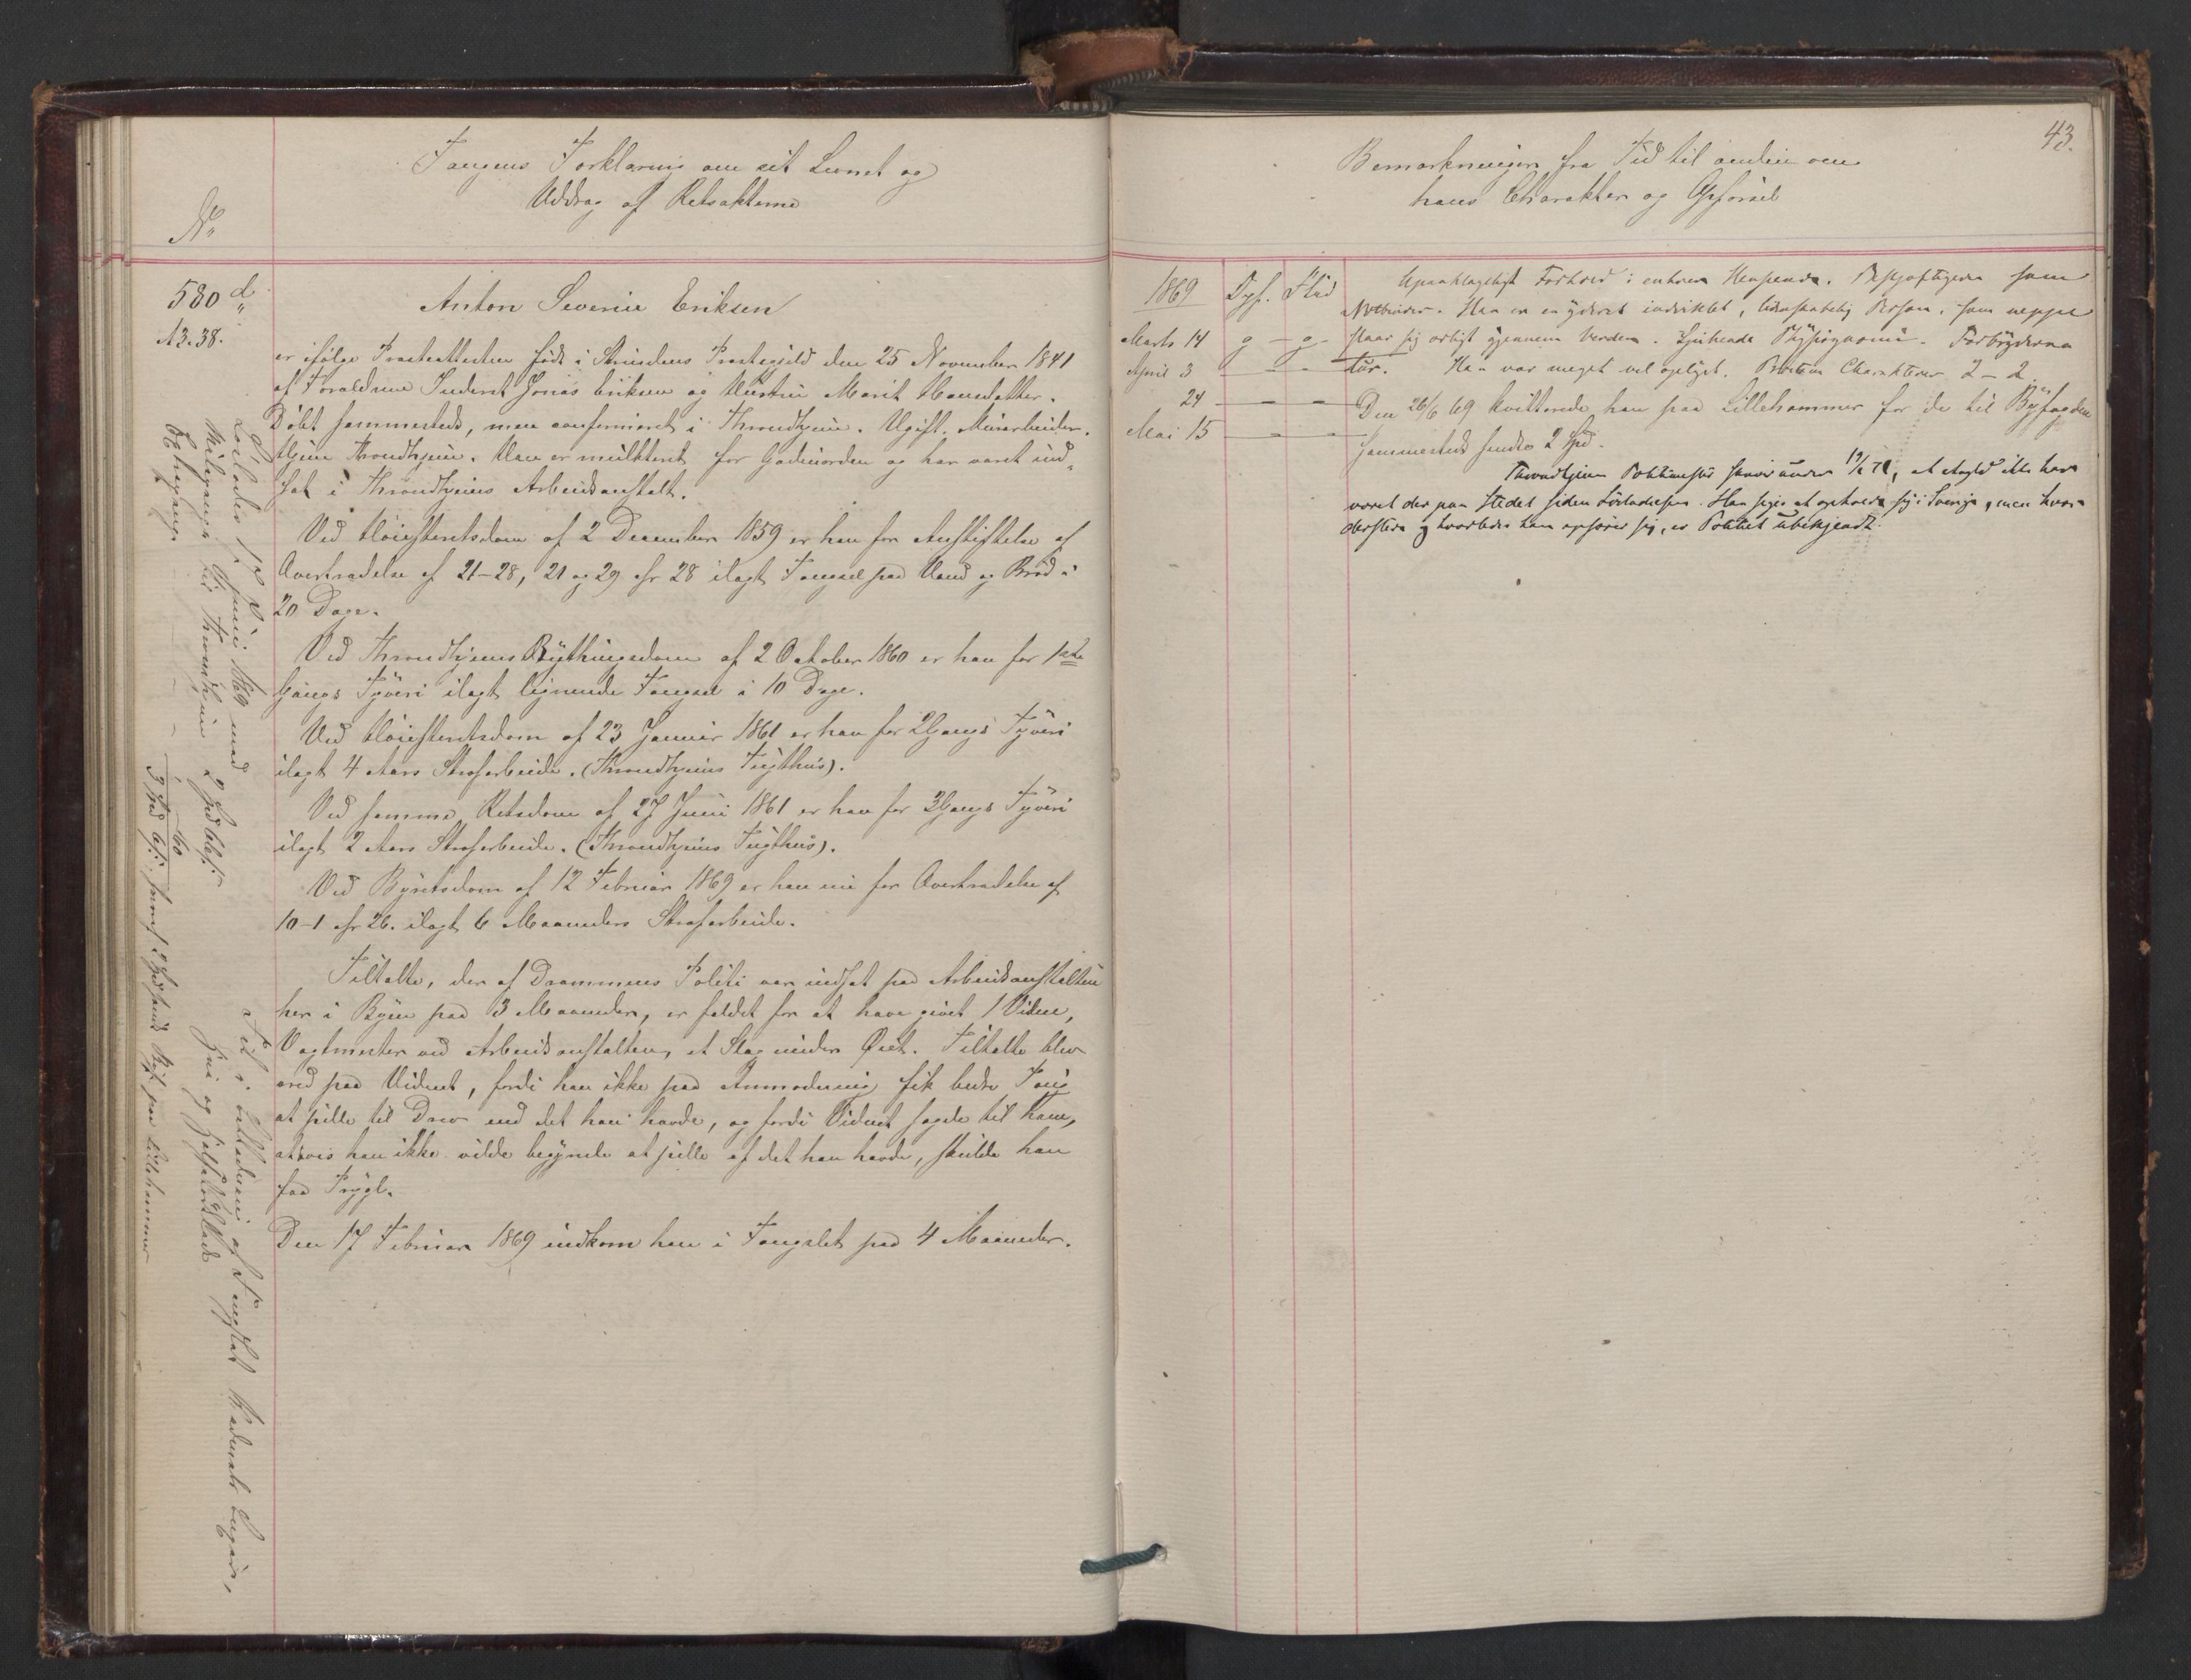 Fangens Forklaring om sit Levnet og
Uddrag af Retsakterne
No
580 d
A3.38.
Anton Severin Eriksen
er ifølge Præsteattesten født i Strindens Præstegjeld den 25 November 1841
af Forældrene Inderst Jonas Eriksen og Hustru Marit Hansdatter.
Døbt sammesteds, men confirmeret i Throndhjem. Ugift. Murarbeider.
Hjem Throndhjem. Han er mulkteret for Gadeuorden og har været ind-
sat i Throndhjems Arbeidsanstalt.
Ved Høiesteretsdom af 2 December 1859 er han for Anstiftelse af
Overtrædelse af 21-28, 21 og 29 cfr 28 ilagt Fængsel paa Vand og Brød i
20 Dage.
Ved Throndhjems Bythingsdom af 2 October 1860 er han for 1ste
Gangs Tyveri ilagt lignende Fængsel i 10 Dage.
Ved Høiesteretsdom af 23 Januar 1861 er han for 2 Gangs Tyveri
ilagt 4 Aars Strafarbeide. (Throndhjems Tugthus).
Ved samme Retsdom af 27 Juni 1861 er han for 3 Gangs Tyveri
ilagt 2 Aars Strafarbeide. (Throndhjems Tugthus).
Ved Byretsdom af 12 Februar 1869 er han nu for Overtrædelse af
10-1 cfr 26. ilagt 6 Maaneders Strafarbeide.
Tiltalte, der af Drammens Politi var indsat paa Arbeidsanstalten
her i Byen paa 3 Maaneder, er fældet for at have givet 1 Vidne,
Vagtmester ved Arbeidsanstalten, et Slag under Øiet. Tiltalte blev
vred paa Vidnet, fordi han ikke paa Anmodning fik bedre Toug
at pille til Drev end det han havde, og fordi Vidnet sagde til ham,
at hvis han ikke vilde begynde at pille af det han havde, skulde han
faa Prygl.
Den 17 Februar 1869 indkom han i Fængslet paa 4 Maaneder.
Løslades 17 Juni 1869 med
til Throndhjem 2 Spd
3 Spd
2 Spd sendt paa Lillehammer
43.
Bemærkninger fra Tid til anden om
hans Charakter og Opførsel
1869 Opf. Flid
Marts 14 g - g -
April 3 - - -
24 - - -
Mai 15 - - -
Upaaklageligt Forhold i enhver Henseende. Beskjæftigedes som
Vævbinder. Han er en yderst indesluttet, lidenskabelig Person, som neppe
slaar sig ærligt gjennem Verden. Physiognomi. Forbryderna
tur. Han var meget vel oplyst. Bortkom Charakteren 2 - 2
Den 26/6 69 kvitterede han paa Lillehammer for de til Byfogden
sammesteds sendte 2 Spd.
Throndhjems Politimester skriver under 19/2 71, at A ikke har
været der paa Stedet siden Løsladelsen. Han siges at opholde sig i Sverige, men hvor
dersteds og hvorledes han opfører sig, er Politiet ubekjendt.